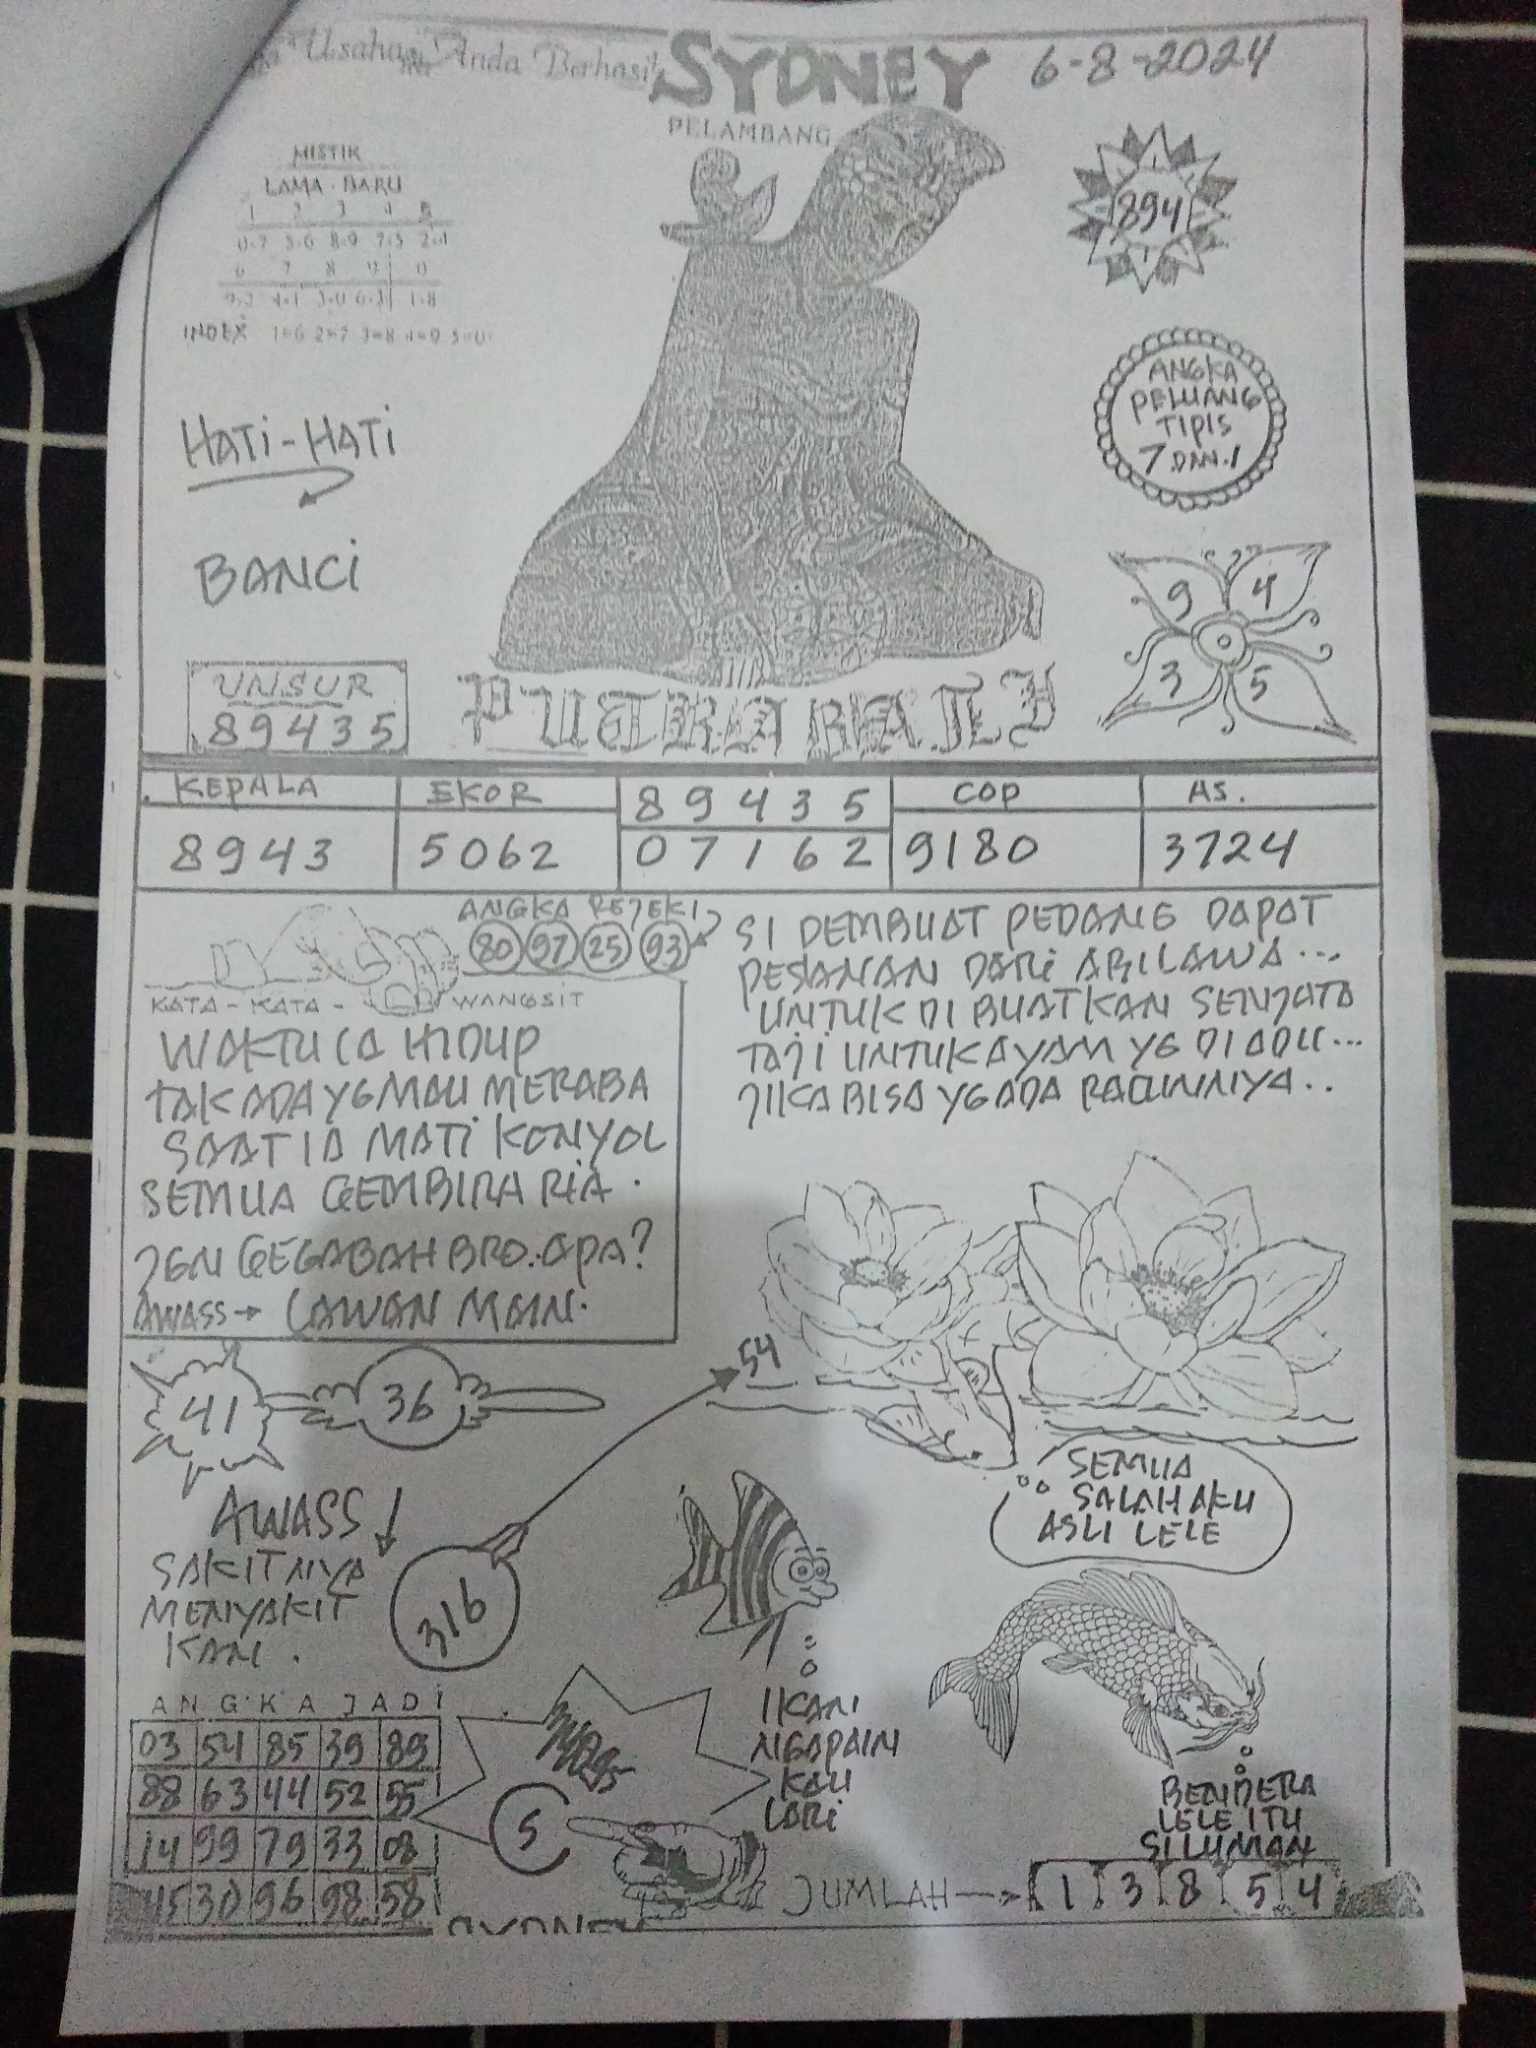 Usaha Anda Berhasil
SYDNEY
6-8-2024
PELAMBANG
MISTIK
LAMA - BARU
1 2 3 4 5
0-7 5-6 8-9 7-5 2-4
6 7 8 9 0
9-2 4-1 3-0 6-3 1-8
INDEX 1=6 2=7 3=8 4=9 5=0
894
HATI-HATI
BANCI
ANGKA
PELUANG
TIPIS
7 DAN 1
9 4
3 5
UNSUR
89435
PUTRA BALI
KEPALA EKOR 89435 COP AS.
8943 5062 07162 9180 3724
ANGKA REJEKI
80 97 25 93
KATA-KATA-WANGSIT
WAKTU IA HIDUP
TAK ADA YG MAU MERABA
SAAT IA MATI KONYOL
SEMUA GEMBIRA RIA.
JGN GEGABAH BRO..APA?
AWASS → LAWAN MAIN.
SI PEMBUAT PEDANG DAPAT
PESANAN DARI ABILAWA...
UNTUK DI BUATKAN SENJATA
TAJI UNTUK AYAM YG DI ADU...
JIKA BISA YG ADA RACUNNYA..
41 36
54
AWASS
SAKITNYA
MENYAKIT
KAN.
316
SEMUA
SALAH AKU
ASLI LELE
IKAN
NGAPAIN
KAU
LARI
BENDERA
LELE ITU
SILUMAN
ANGKA JADI
03 54 85 39 89
88 63 44 52 55
14 99 79 33 08
45 30 96 98 58
5
JUMLAH → 1 3 8 5 4
SYDNEY